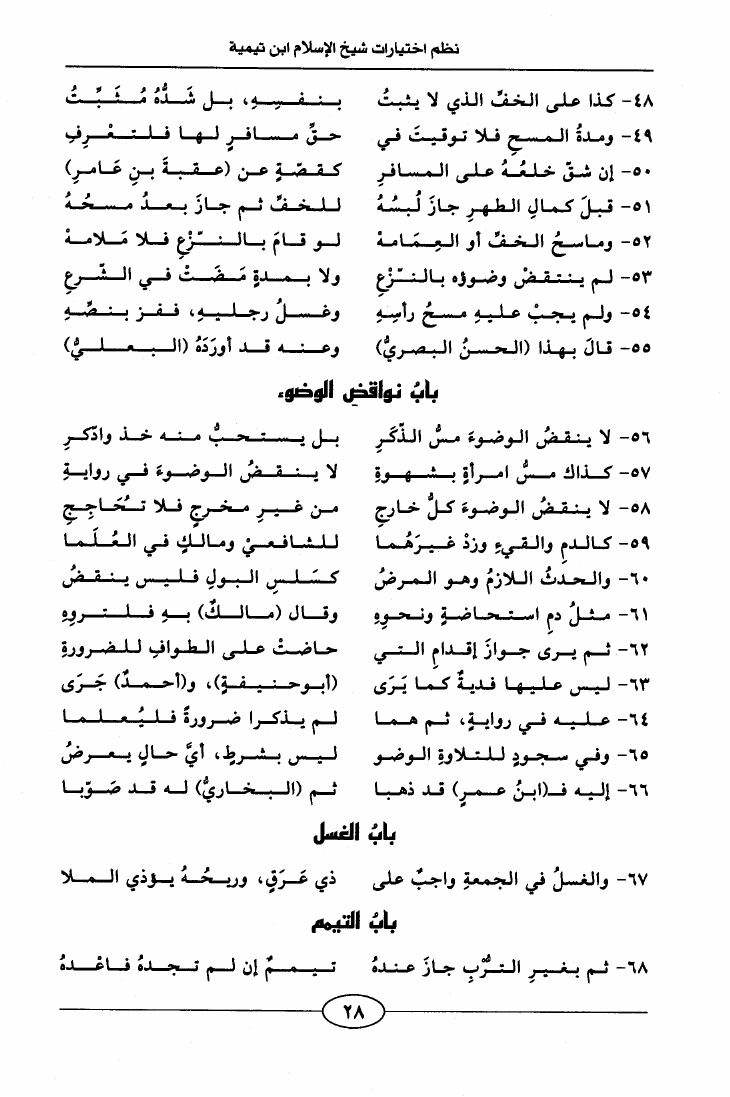 نظم اختيارات شيخ الإسلام ابن تيمية
٤٨- كذا على الخفِّ الذي لا يثبتُ بنفسِهِ، بل شَدُّهُ مُثَبِّتُ
٤٩- ومدةُ المسحِ فلا توقيتَ في حقِّ مسافرٍ لها فلتعْرِفِ
٥٠- إن شقَّ خلعُهُ على المسافرِ كقصَّةٍ عن (عقبةَ بنِ عَامرِ)
٥١- قبلَ كمالِ الطهرِ جازَ لُبسُهُ للخفِّ ثم جازَ بعدُ مسحُهُ
٥٢- وماسحُ الخفِّ أو العِمَامةْ لو قامَ بالنَّزْعِ فلا مَلامةْ
٥٣- لم ينتقضْ وضوؤه بالنَّزْعِ ولا بمدةٍ مَضَتْ في الشَّرعِ
٥٤- ولم يجبْ عليهِ مسحُ رأسِهِ وغسلُ رجليهِ، ففز بنصِّهِ
٥٥- قالَ بهذا (الحسنُ البصريُّ) وعنه قد أورَدَهُ (البعليُّ)
بابُ نواقضِ الوضوء
٥٦- لا ينقضُ الوضوءَ مسُّ الذَّكَرِ بل يستحبُّ منه خذ وادّكرِ
٥٧- كذاك مسُّ امرأةٍ بشهوةِ لا ينقضُ الوضوءَ في روايةِ
٥٨- لا ينقضُ الوضوءَ كلُّ خارجِ من غيرِ مخرجٍ فلا تُحَاجِجِ
٥٩- كالدمِ والقيءِ وزدْ غيرَهُما للشافعيْ ومالكٍ في العُلَما
٦٠- والحدثُ اللازمُ وهو المرضُ كسَلَسِ البولِ فليس ينقضُ
٦١- مثلُ دمِ استحاضةٍ ونحوِهِ وقال (مالكٌ) بهِ فلتروِهِ
٦٢- ثم يرى جوازَ إقدامِ التي حاضتْ على الطوافِ للضرورةِ
٦٣- ليس عليها فديةٌ كما يَرَى (أبوحنيفةٍ)، و(أحمدٌ) جَرَى
٦٤- عليه في روايةٍ، ثم هما لم يذكرا ضرورةً فليُعلما
٦٥- وفي سجودٍ للتلاوةِ الوضو ليس بشرطٍ، أيَّ حالٍ يعرضُ
٦٦- إليه فـ(ابنُ عمرٍ) قد ذهبا ثم (البخاريُّ) له قد صَوَّبا
بابُ الغسل
٦٧- والغسلُ في الجمعةِ واجبٌ على ذي عَرَقٍ، وريحُهُ يؤذي الملا
بابُ التيمم
٦٨- ثم بغيرِ التُّربِ جازَ عندهُ تيممٌ إن لم تجدهُ فاعْدُهُ
٢٨